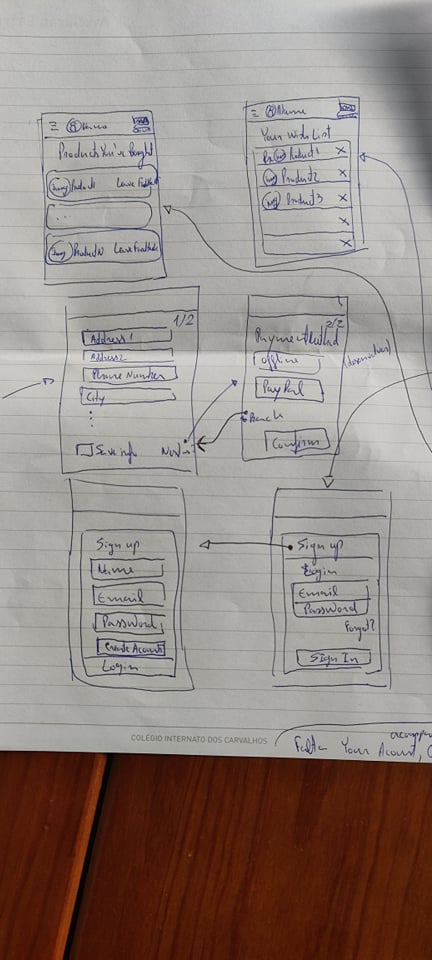 Name
Products You've Bought
Img Product 1 Leave Feedback
...
Img Product N Leave Feedback
Name
Your Wish List
Product 1 X
Img Product 2 X
Img Product 3 X
X
X
1/2
Address 1
Address 2
Phone Number
City
Save info Next
2/2
Payment Method
Offline
PayPal
Back
Confirm
Sign up
Name
Email
Password
Create Account
Login
Sign up
Login
Email
Password
Forgot?
Sign In
COLÉGIO INTERNATO DOS CARVALHOS
Your Acount,